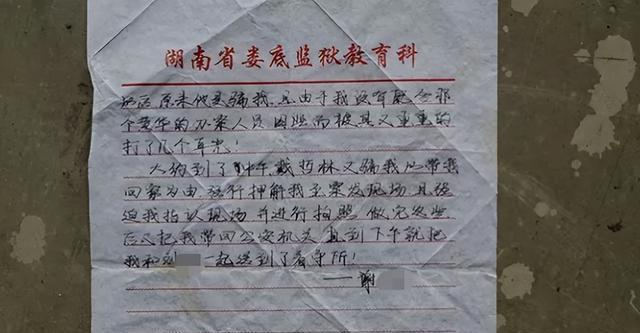 湖南省娄底监狱教育科
原来他是骗我，且由于我没有配合那
个党华的办案人员因此而被其又重重的
打了几个耳光！
大约到了中午，戴哲林又骗我以带我
回家为由，强行押解我至案发现场，且强
迫我指认现场，并进行拍照，做完这些
后又把我带回公安机关，直到下午就把
我和刘一起送到了看守所！
——谢